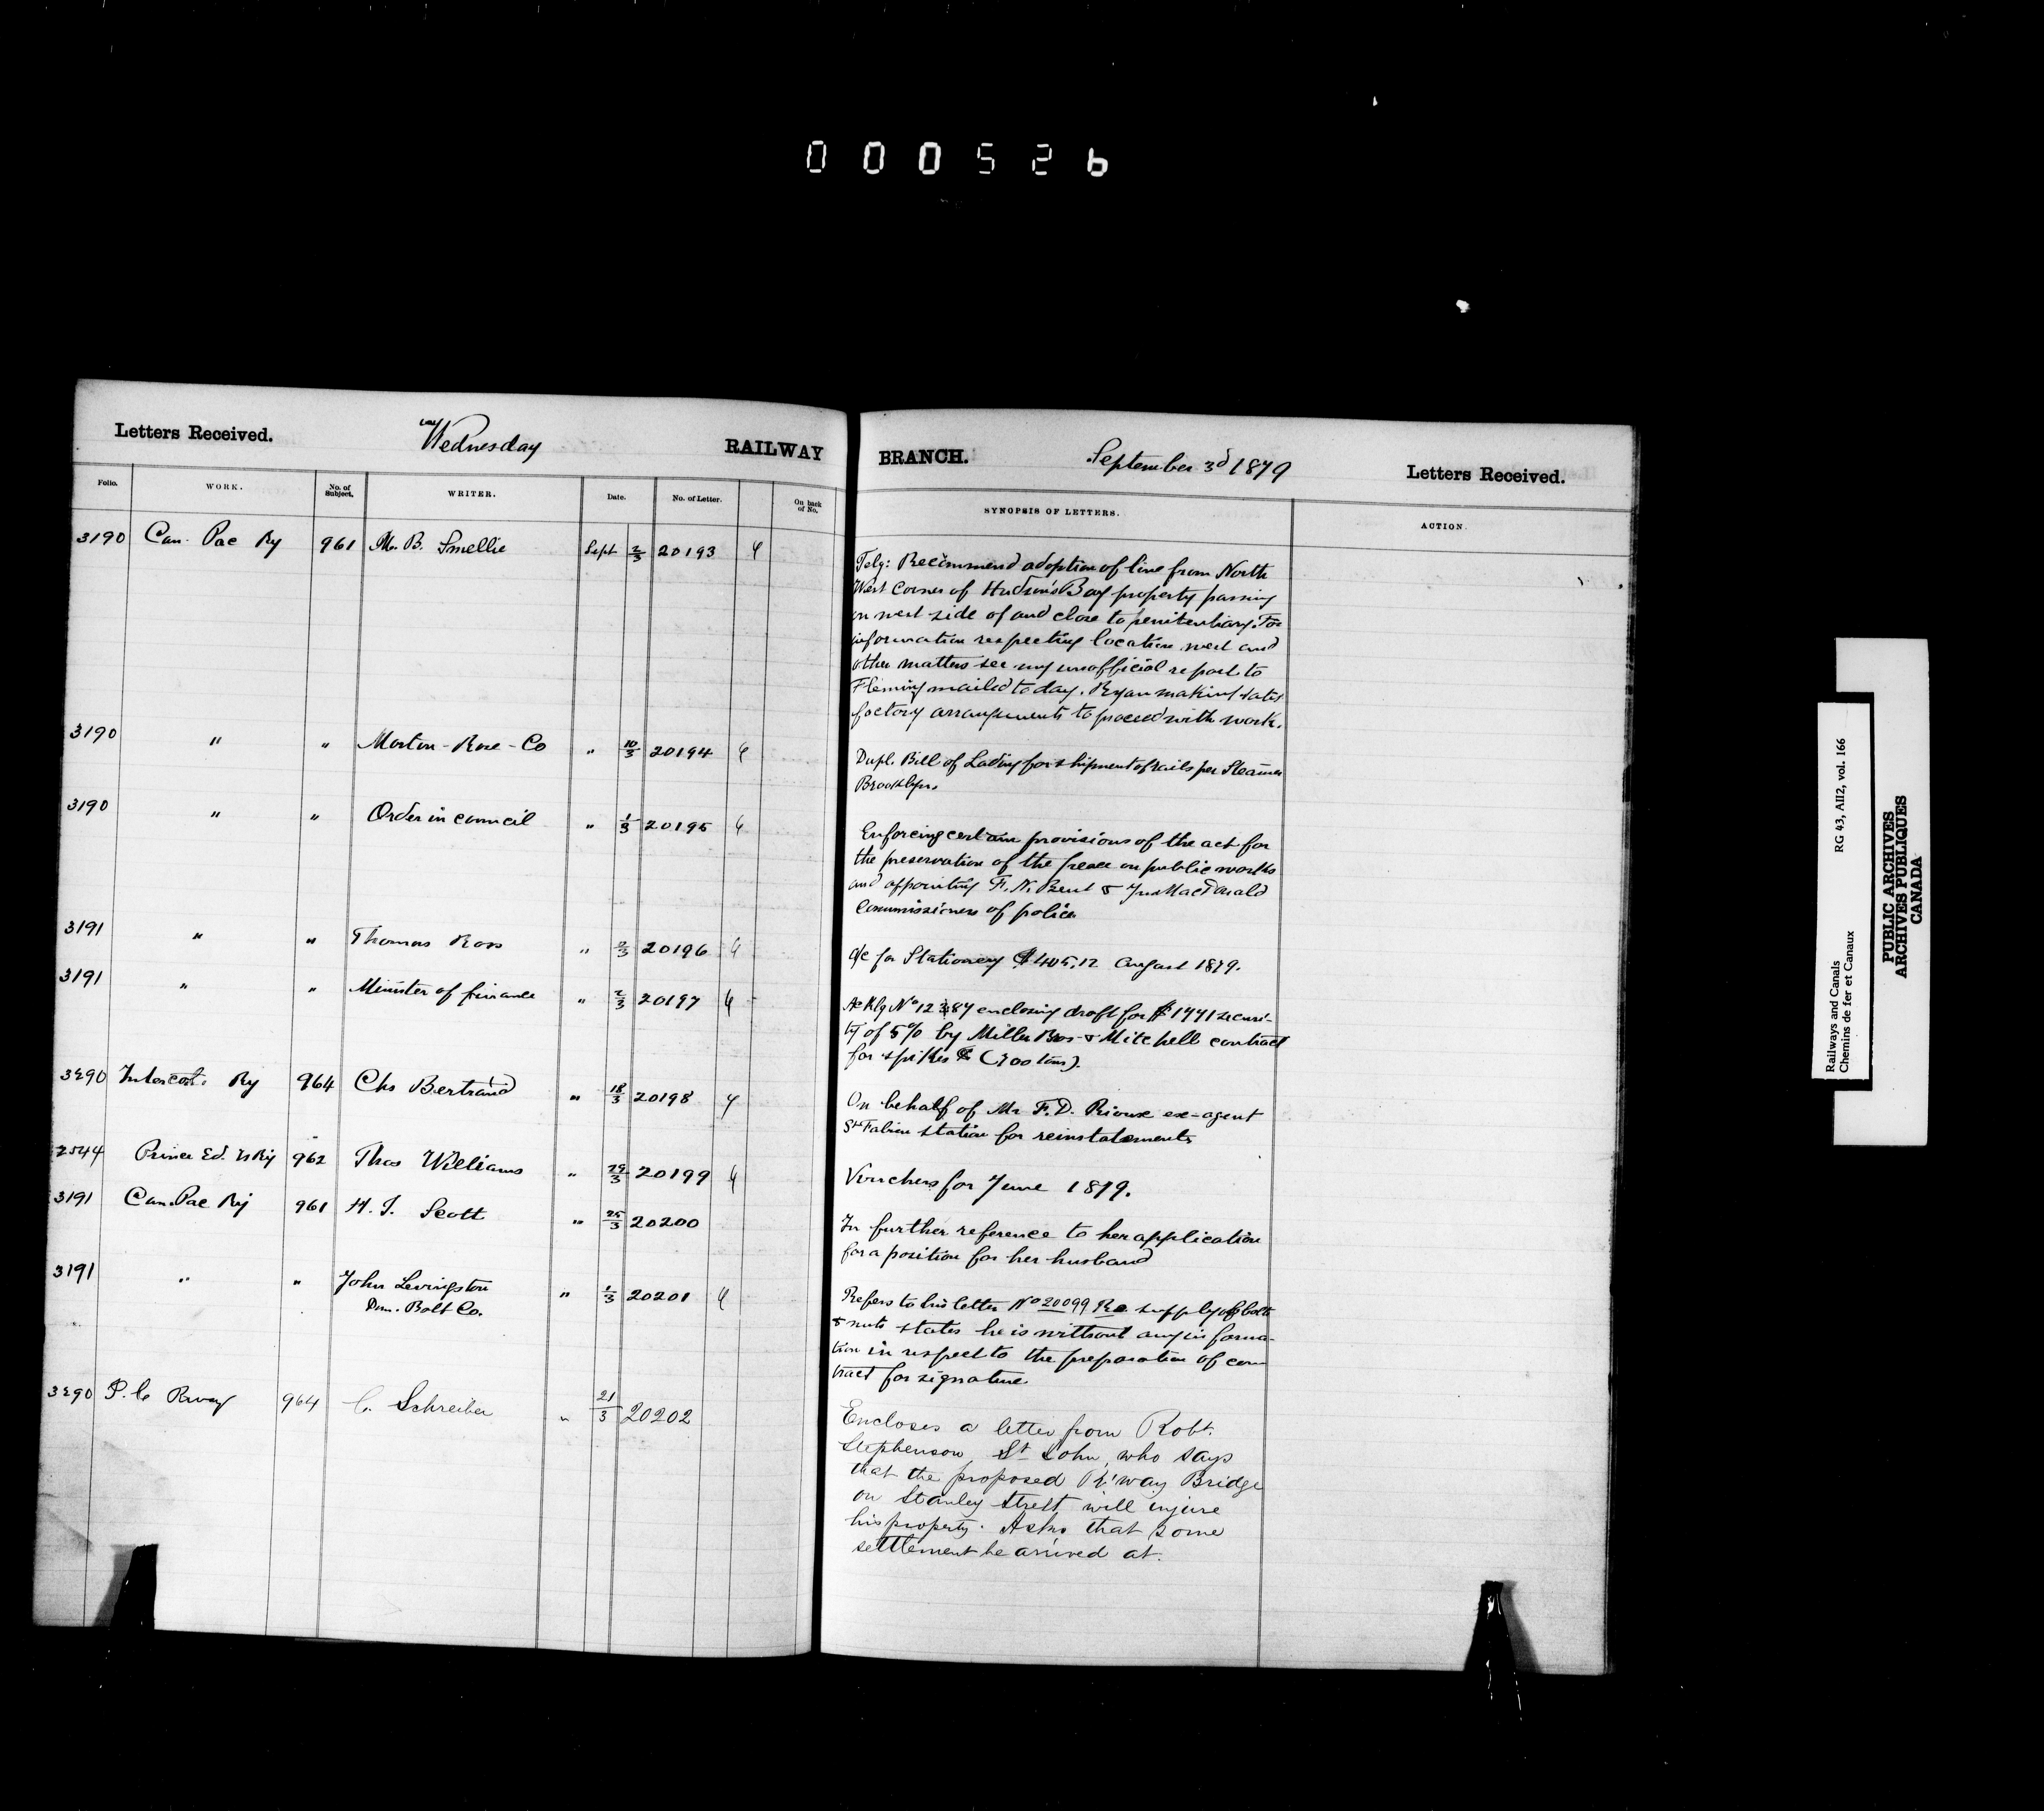 000526
Letters Received. Wednesday RAILWAY BRANCH. September 3d 1879 Letters Received.
Folio. WORK. No. of Subject. WRITER. Date. No. of Letter. On back of No. SYNOPSIS OF LETTERS. ACTION.
3190 Can. Pac Ry 961 M. B. Smellie Sept 2/3 20193
Telg: Recommend adoption of line from North
West Corner of Hudson's Bay property passing
on west side of and close to penitentiary. For
information respecting location west and
other matters see my unofficial report to
Fleming mailed to day. Ryan making satis
factory arrangements to proceed with work.
3190 " " Morton-Rose-Co " 10/3 20194
Dupl. Bill of Lading for shipment of rails per Steamer
Brooklyn.
3190 " " Order in council " 1/3 20195
Enforcing certain provisions of the act for
the preservation of the peace on public works
and appointing F. N. Brent & Jno MacDonald
Commissioners of police
3191 " " Thomas Ross " 2/3 20196
a/c for Stationery $405.12 August 1879.
3191 " " Minister of finance " 2/3 20197
Ackly No 12387 enclosing draft for $1771 securi-
ty of 5% by Miller Bros & Mitchell contract
for spikes (700 tons).
3290 Intercol. Ry 964 Chs Bertrand " 18/3 20198
On behalf of Mr F. D. Rioux ex-agent
St Fabien station for reinstatement
2544 Prince Ed. Is Ry 962 Thos Williams " 29/3 20199
Vouchers for June 1879.
3191 Can. Pac Ry 961 H. J. Scott " 25/3 20200
In further reference to her application
for a position for her husband
3191 " " John Levingston " 1/3 20201
Dom. Bolt Co.
Refers to his letter No 20099 Re supply of bolts
& nuts states he is without any informa-
tion in respect to the preparation of con
tract for signature
3290 964 C. Schreiber " 21/3 20202
Encloses a letter from Robt.
Stephenson, St John, who says
that the proposed R'way Bridge
on Stanley Street will injure
his property. Asks that some
settlement be arrived at.
Railways and Canals RG 43, AII2, vol. 166
Chemins de fer et Canaux
PUBLIC ARCHIVES
ARCHIVES PUBLIQUES
CANADA